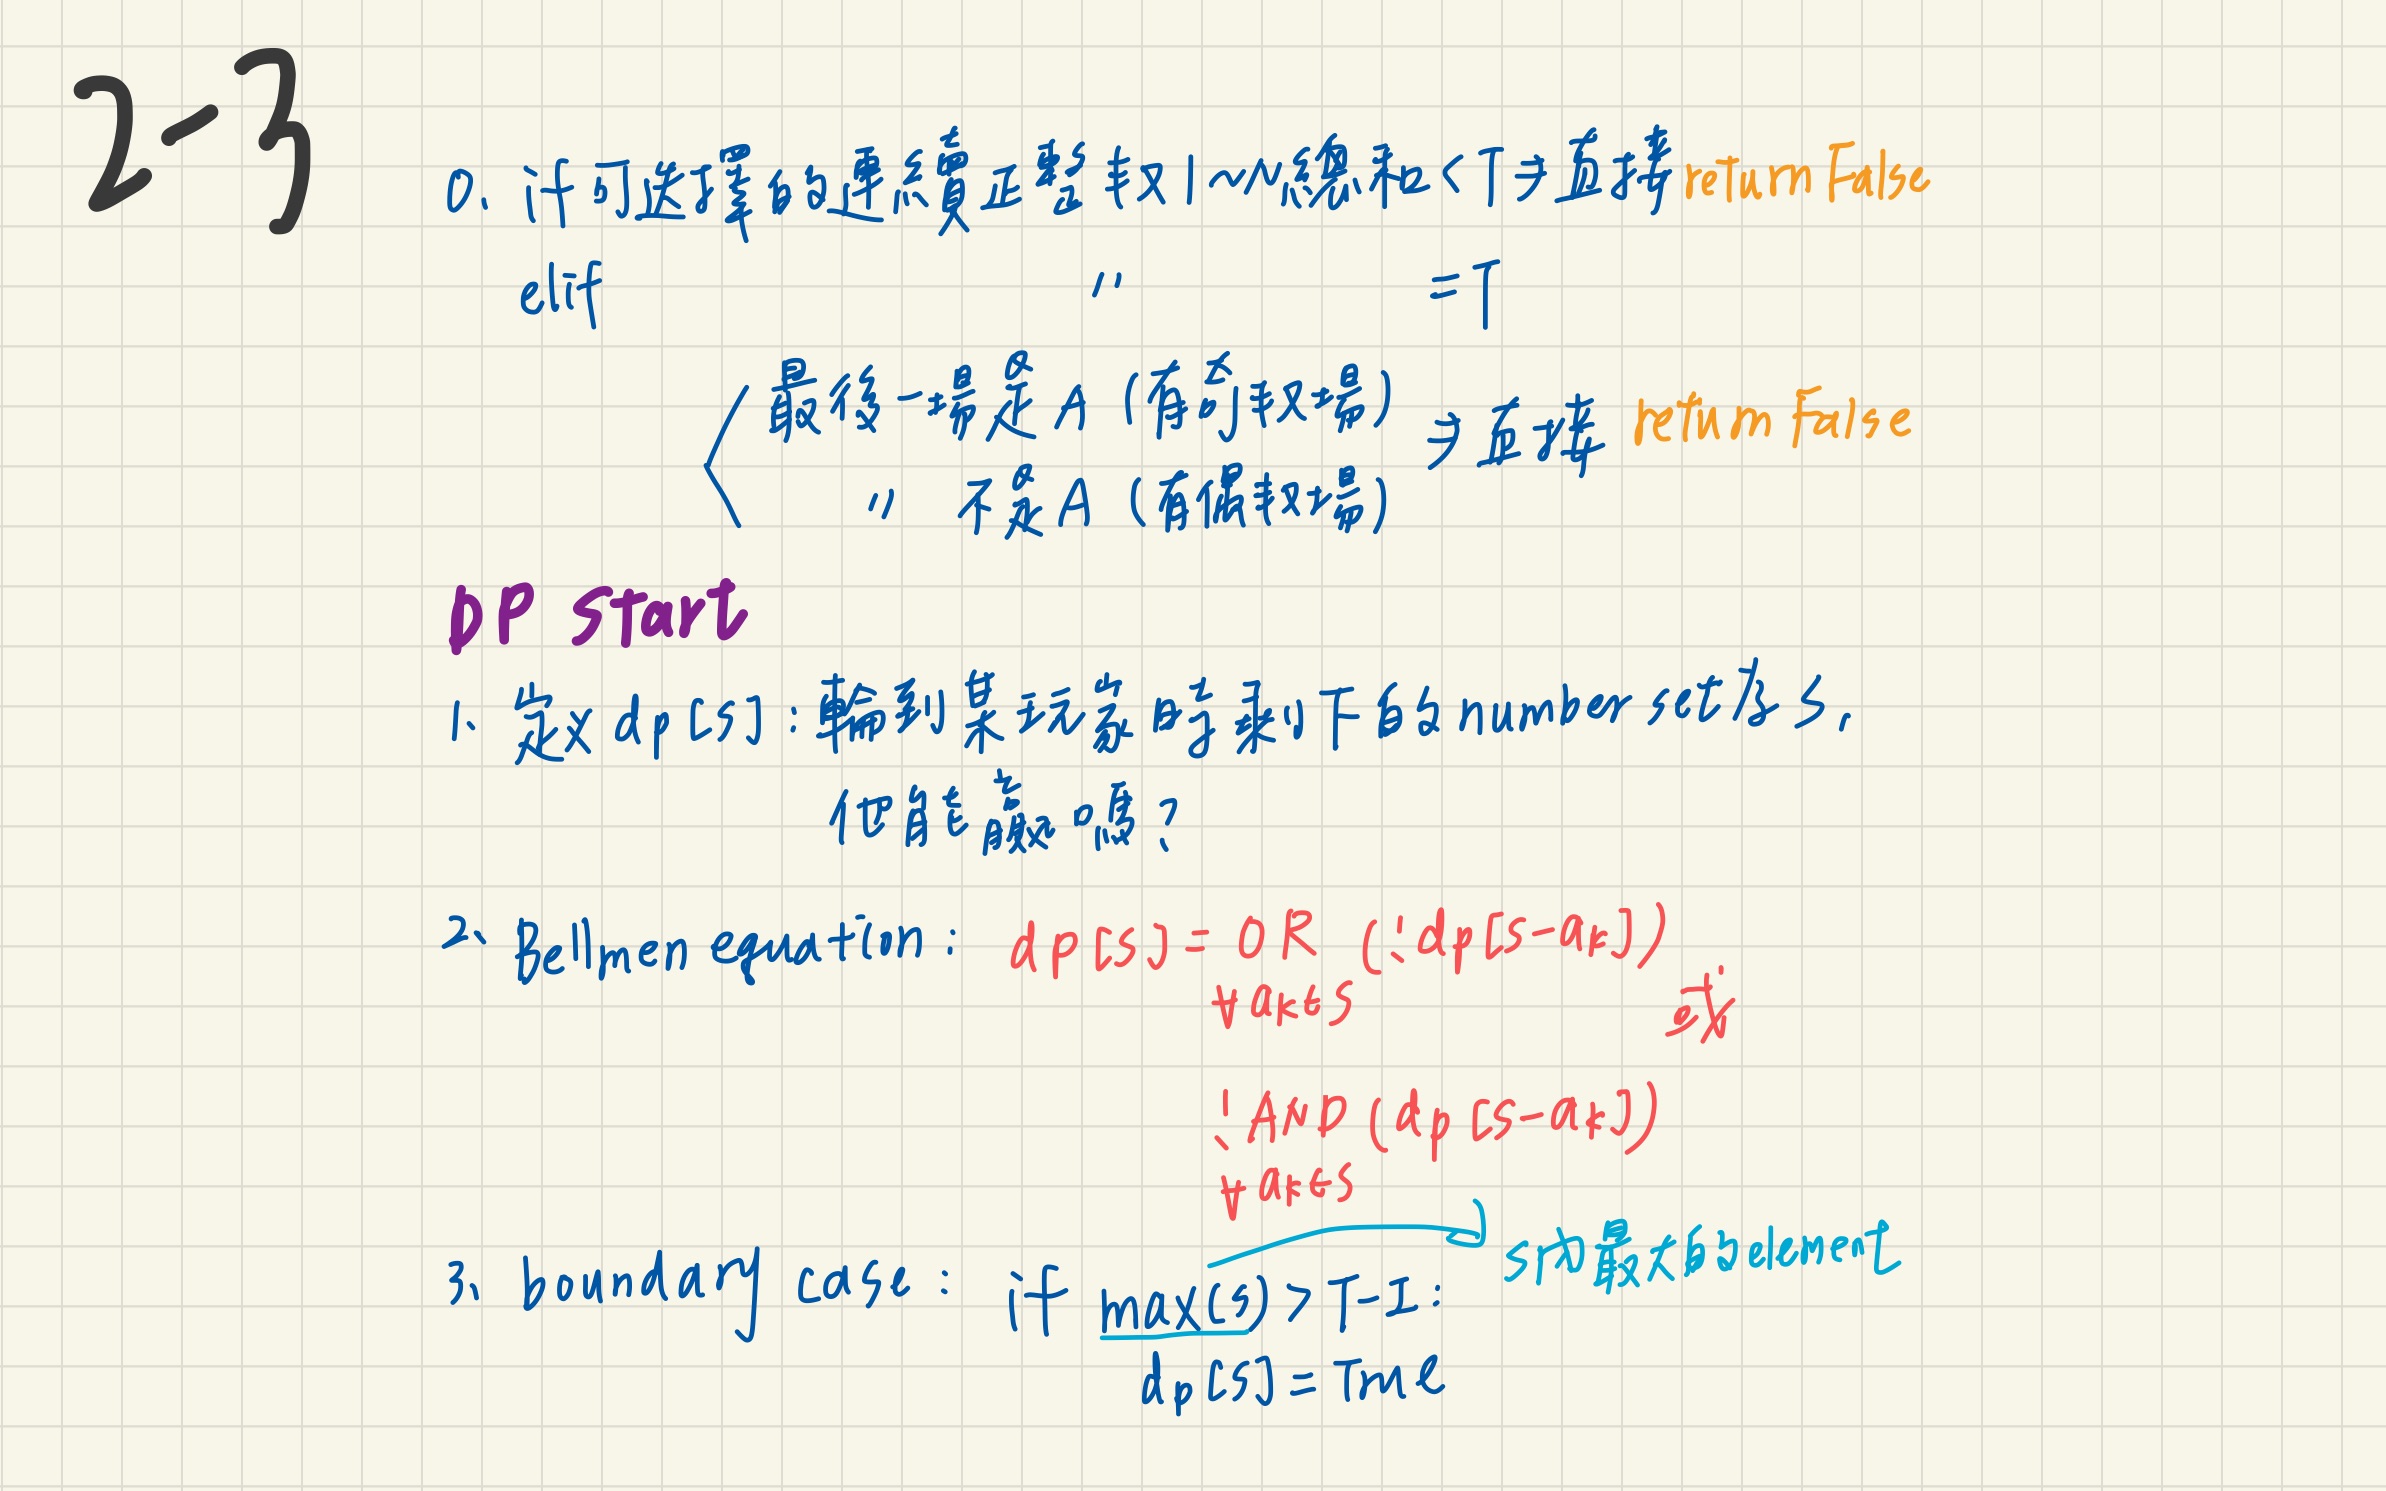 2-3
0. if 可選擇的連續正整數 1~N 總和 < T ⇒ 直接 return False
elif 〃 = T
最後一場是 A (有奇數場)
⇒ 直接 return False
〃 不是 A (有偶數場)
DP start
1. 定义 dp[s]: 輪到某玩家時剩下的 number set 為 s.
他能贏嗎?
2. Bellmen equation: dp[s] = OR (!dp[s-ak])
∀ak∈s
或
!AND (dp[s-ak])
∀ak∈s
s內最大的element
3. boundary case: if max(s) > T-I:
dp[s] = True